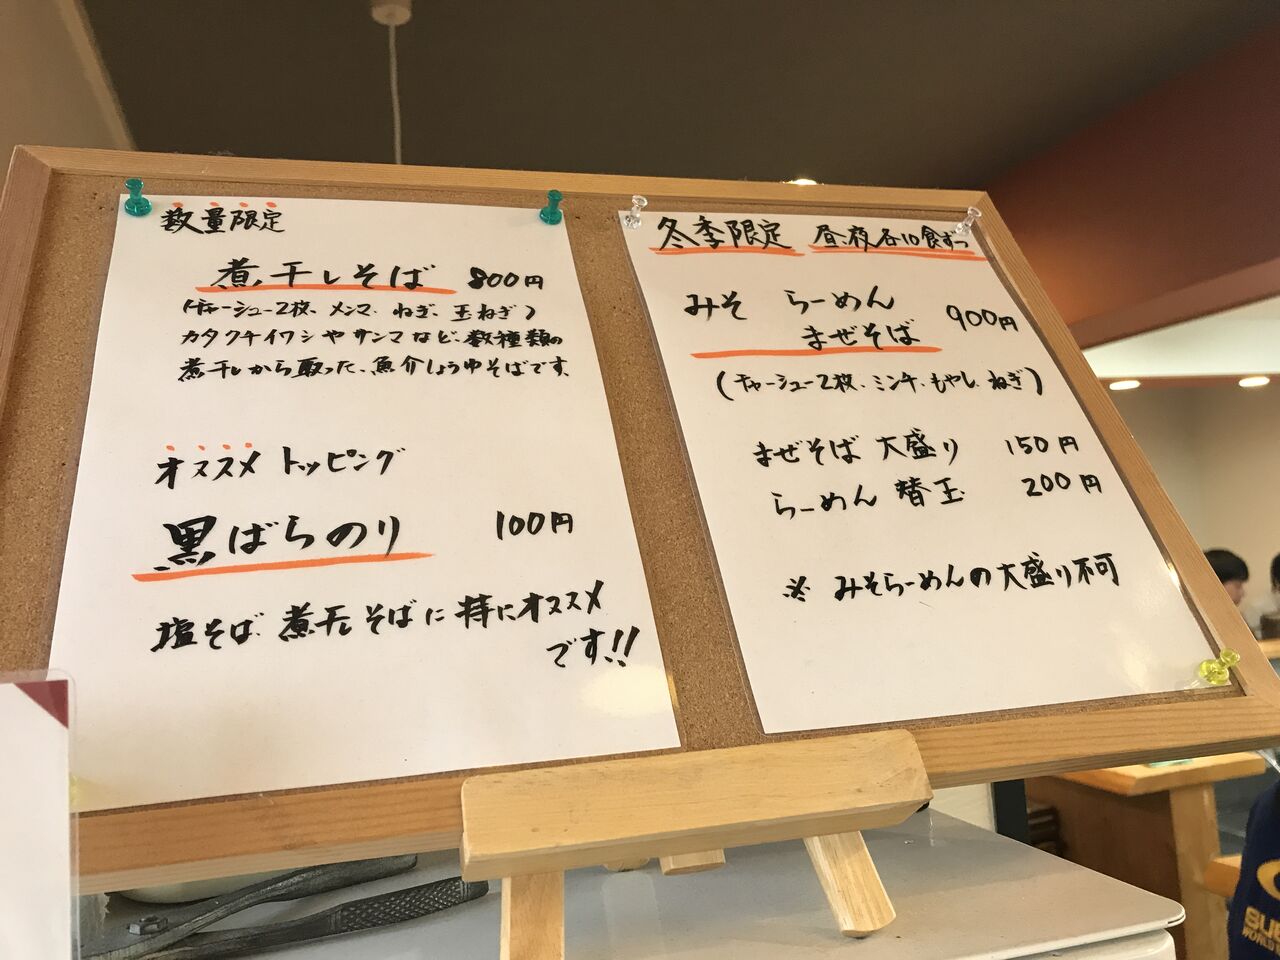 数量限定
煮干しそば 800円
(チャーシュー2枚、メンマ、ねぎ、玉ねぎ)
カタクチイワシやサンマなど、数種類の
煮干しから取った、魚介しょうゆそばです。
オススメ トッピング
黒ばらのり 100円
塩そば、煮干しそばに特にオススメ
です!!
冬季限定 昼、夜各10食ずつ
みそ らーめん
まぜそば 900円
(チャーシュー2枚、ミンチ、もやし、ねぎ)
まぜそば 大盛り 150円
らーめん 替玉 200円
※ みそらーめんの大盛り不可